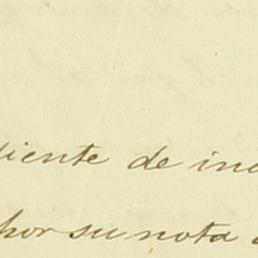 diente de ind
por su nota d